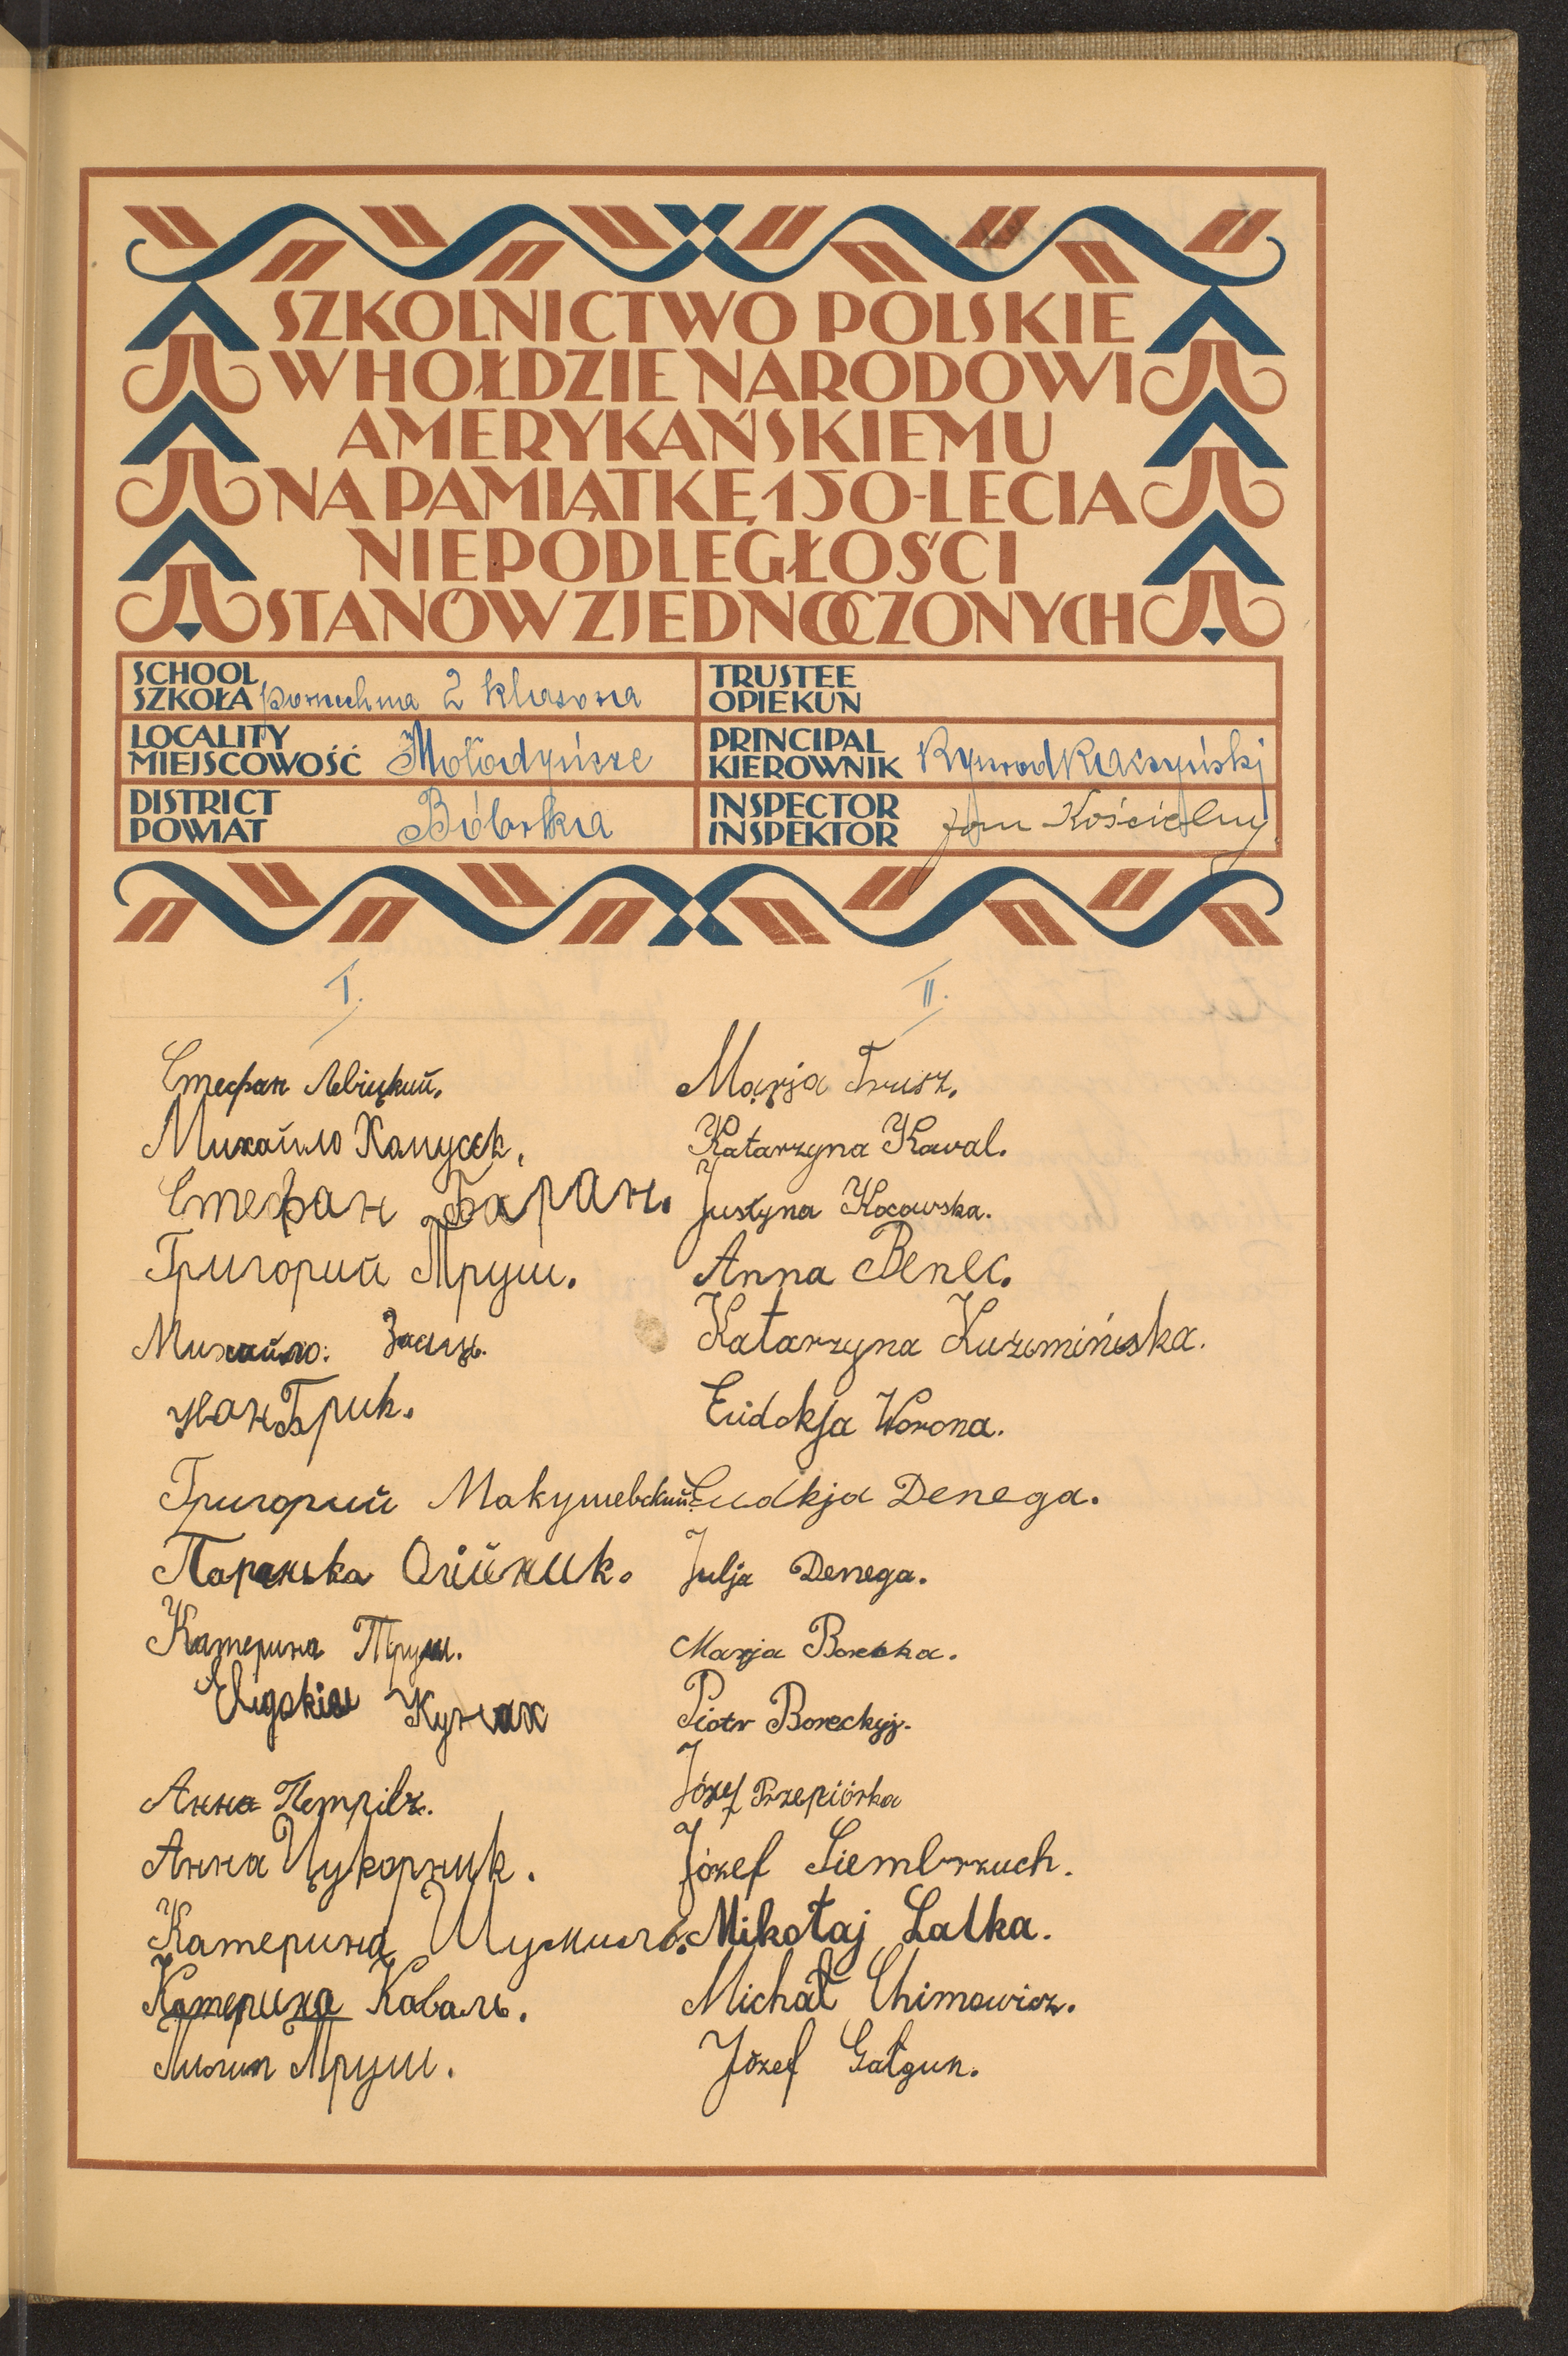 SZKOLNICTWO POLSKIE
W HOŁDZIE NARODOWI
AMERYKAŃSKIEMU
NA PAMIĄTKĘ 150-LECIA
NIEPODLEGŁOŚCI
STANÓW ZJEDNOCZONYCH
SCHOOL
SZKOŁA powszechna 2 klasowa
TRUSTEE
OPIEKUN
LOCALITY
MIEJSCOWOŚĆ Mołodyńcze
PRINCIPAL
KIEROWNIK
DISTRICT
POWIAT Bóbrka
INSPECTOR
INSPEKTOR Jan Kościelny
I.
Стефан Левіцкий.
Михайло
Стефан Баран.
Григорий Труш.
Михайло: Заяць.
Іван Брик.
Григорий Макушевский.
Паранька Олійник.
Катерина Труш.
Евдокія
Анна Петрів.
Анна Цукорник.
Катерина Шумило.
Катерина Коваль.
Труш.
II.
Marja Trusz.
Katarzyna Kowal.
Justyna Kocowska.
Anna Benec.
Katarzyna Kuzemińska.
Eudokja Worona.
Eudkja Denega.
Julja Denega.
Marja Borecka.
Piotr Boreckyj.
Józef Przepiórka
Józef Siembrzuch.
Mikołaj Lalka.
Michał Chimowicz.
Józef Gałgun.